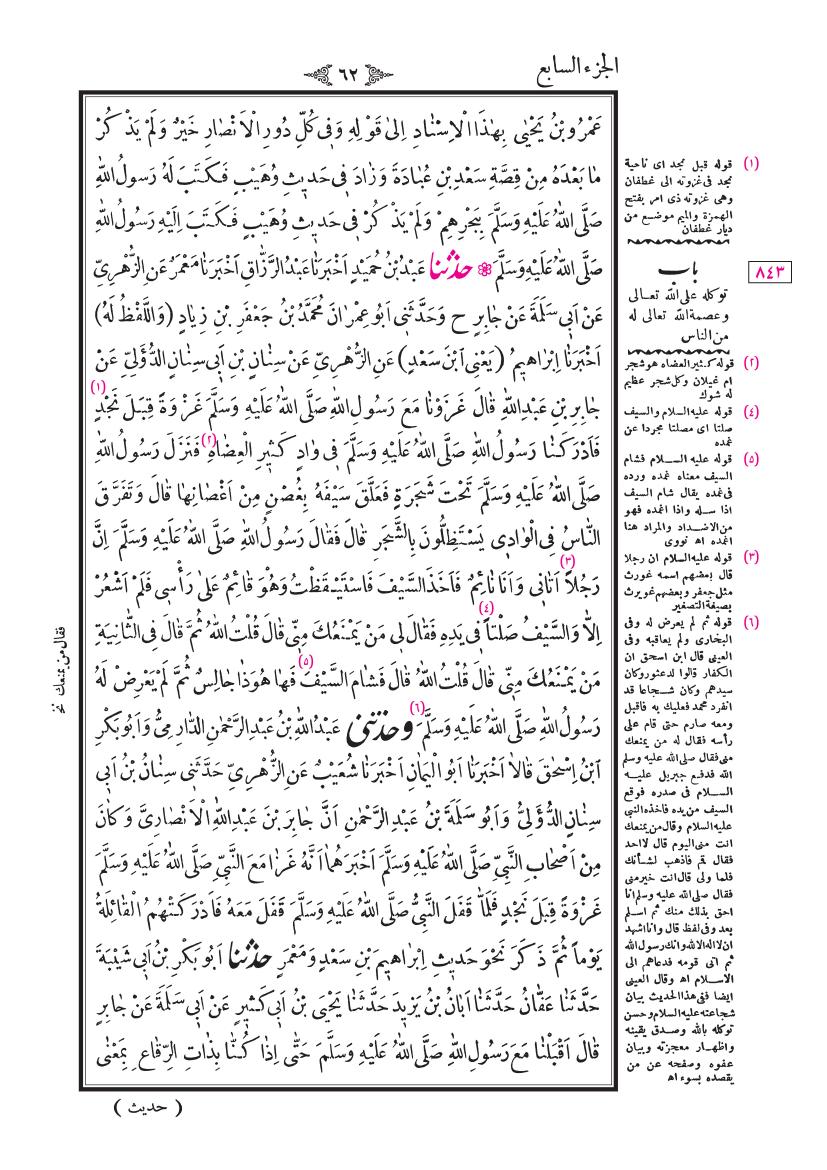 الجزء السابع
٦٢
عَمْرُو بْنُ يَحْيٰى بِهٰذَا الْاِسْنَادِ اِلىٰ قَوْلِهِ وَفِى كُلِّ دُورِ الْاَنْصَارِ خَيْرٌ وَلَمْ يَذْكُرْ
مَا بَعْدَهُ مِنْ قِصَّةِ سَعْدِ بْنِ عُبَادَةَ وَزَادَ فِى حَدِيثِ وُهَيْبٍ فَكَتَبَ لَهُ رَسُولُ اللهِ
صَلَّى اللهُ عَلَيْهِ وَسَلَّمَ بِبَحْرِهِمْ وَلَمْ يَذْكُرْ فِى حَدِيثِ وُهَيْبٍ فَكَتَبَ اِلَيْهِ رَسُولُ اللهِ
صَلَّى اللهُ عَلَيْهِ وَسَلَّمَ ❁ حدثنا عَبْدُ بْنُ حُمَيْدٍ اَخْبَرَنَا عَبْدُ الرَّزَّاقِ اَخْبَرَنَا مَعْمَرٌ عَنِ الزُّهْرِىِّ
عَنْ اَبِى سَلَمَةَ عَنْ جَابِرٍ ح وَحَدَّثَنِى اَبُو عِمْرَانَ مُحَمَّدُ بْنُ جَعْفَرِ بْنِ زِيَادٍ (وَاللَّفْظُ لَهُ)
اَخْبَرَنَا اِبْرَاهِيمُ (يَعْنِى ابْنَ سَعْدٍ) عَنِ الزُّهْرِىِّ عَنْ سِنَانِ بْنِ اَبِى سِنَانٍ الدُّؤَلِىِّ عَنْ
جَابِرِ بْنِ عَبْدِ اللهِ قَالَ غَزَوْنَا مَعَ رَسُولِ اللهِ صَلَّى اللهُ عَلَيْهِ وَسَلَّمَ غَزْوَةً قِبَلَ نَجْدٍ (١)
فَاَدْرَكَنَا رَسُولُ اللهِ صَلَّى اللهُ عَلَيْهِ وَسَلَّمَ فِى وَادٍ كَثِيرِ الْعِضَاهِ (٢) فَنَزَلَ رَسُولُ اللهِ
صَلَّى اللهُ عَلَيْهِ وَسَلَّمَ تَحْتَ شَجَرَةٍ فَعَلَّقَ سَيْفَهُ بِغُصْنٍ مِنْ اَغْصَانِهَا قَالَ وَتَفَرَّقَ
النَّاسُ فِى الْوَادِى يَسْتَظِلُّونَ بِالشَّجَرِ قَالَ فَقَالَ رَسُولُ اللهِ صَلَّى اللهُ عَلَيْهِ وَسَلَّمَ اِنَّ
رَجُلاً (٣) اَتَانِى وَاَنَا نَائِمٌ فَاَخَذَ السَّيْفَ فَاسْتَيْقَظْتُ وَهُوَ قَائِمٌ عَلىٰ رَأْسِى فَلَمْ اَشْعُرْ
اِلاَّ وَالسَّيْفُ صَلْتاً (٤) فِى يَدِهِ فَقَالَ لِى مَنْ يَمْنَعُكَ مِنِّى قَالَ قُلْتُ اللهُ ثُمَّ قَالَ فِى الثَّانِيَةِ
مَنْ يَمْنَعُكَ مِنِّى قَالَ قُلْتُ اللهُ قَالَ فَشَامَ السَّيْفَ (٥) فَهَا هُوَ ذَا جَالِسٌ ثُمَّ لَمْ يَعْرِضْ لَهُ
رَسُولُ اللهِ صَلَّى اللهُ عَلَيْهِ وَسَلَّمَ (٦) وحدثنى عَبْدُ اللهِ بْنُ عَبْدِ الرَّحْمٰنِ الدَّارِمِىُّ وَاَبُو بَكْرِ
ابْنُ اِسْحٰقَ قَالاَ اَخْبَرَنَا اَبُو الْيَمَانِ اَخْبَرَنَا شُعَيْبٌ عَنِ الزُّهْرِىِّ حَدَّثَنِى سِنَانُ بْنُ اَبِى
سِنَانٍ الدُّؤَلِىُّ وَاَبُو سَلَمَةَ بْنُ عَبْدِ الرَّحْمٰنِ اَنَّ جَابِرَ بْنَ عَبْدِ اللهِ الْاَنْصَارِىَّ وَكَانَ
مِنْ اَصْحَابِ النَّبِىِّ صَلَّى اللهُ عَلَيْهِ وَسَلَّمَ اَخْبَرَهُمَا اَنَّهُ غَزَا مَعَ النَّبِىِّ صَلَّى اللهُ عَلَيْهِ وَسَلَّمَ
غَزْوَةً قِبَلَ نَجْدٍ فَلَمَّا قَفَلَ النَّبِىُّ صَلَّى اللهُ عَلَيْهِ وَسَلَّمَ قَفَلَ مَعَهُ فَاَدْرَكَتْهُمُ الْقَائِلَةُ
يَوْماً ثُمَّ ذَكَرَ نَحْوَ حَدِيثِ اِبْرَاهِيمَ بْنِ سَعْدٍ وَمَعْمَرٍ حدثنا اَبُو بَكْرِ بْنُ اَبِى شَيْبَةَ
حَدَّثَنَا عَفَّانُ حَدَّثَنَا اَبَانُ بْنُ يَزِيدَ حَدَّثَنَا يَحْيَى بْنُ اَبِى كَثِيرٍ عَنْ اَبِى سَلَمَةَ عَنْ جَابِرٍ
قَالَ اَقْبَلْنَا مَعَ رَسُولِ اللهِ صَلَّى اللهُ عَلَيْهِ وَسَلَّمَ حَتَّى اِذَا كُنَّا بِذَاتِ الرِّقَاعِ بِمَعْنَى
( حديث )
(١) قوله قبل نجد اى ناحية
نجد فى غزوته الى غطفان
وهى غزوته ذى امر بفتح
الهمزة والميم موضع من
ديار غطفان
٨٤٣
باب
توكله على الله تعالى
وعصمة الله تعالى له
من الناس
(٢) قوله كثير العضاه هو شجر
ام غيلان وكل شجر عظيم
له شوك
(٤) قوله عليه السلام والسيف
صلتا اى مصلتا مجردا عن
غمده
(٥) قوله عليه السلام فشام
السيف معناه غمده ورده
فى غمده يقال شام السيف
اذا سله واذا اغمده فهو
من الاضداد والمراد هنا
اغمده اه نووى
(٣) قوله عليه السلام ان رجلا
قال بعضهم اسمه غورث
مثل جعفر وبعضهم غويرث
بصيغة التصغير
(٦) قوله ثم لم يعرض له وفى
البخارى ولم يعاقبه وفى
العينى قال ابن اسحق ان
الكفار قالوا لدعثور وكان
سيدهم وكان شجاعا قد
انفرد محمد فعليك به فاقبل
ومعه صارم حتى قام على
رأسه فقال له من يمنعك
منى فقال صلى الله عليه وسلم
الله فدفع جبريل عليه
السلام فى صدره فوقع
السيف من يده فاخذه النبى
عليه السلام وقال من يمنعك
انت منى اليوم قال لا احد
فقال قم فاذهب لشأنك
فلما ولى قال انت خير منى
فقال صلى الله عليه وسلم انا
احق بذلك منك ثم اسلم
بعد وفى لفظ قال وانا اشهد
ان لا اله الا الله وانك رسول الله
ثم اتى قومه فدعاهم الى
الاسلام اه وقال العينى
ايضا ففى هذا الحديث بيان
شجاعته عليه السلام وحسن
توكله بالله وصدق يقينه
واظهار معجزته وبيان
عفوه وصفحه عن من
يقصده بسوء اه
فقال من يمنعك نخ